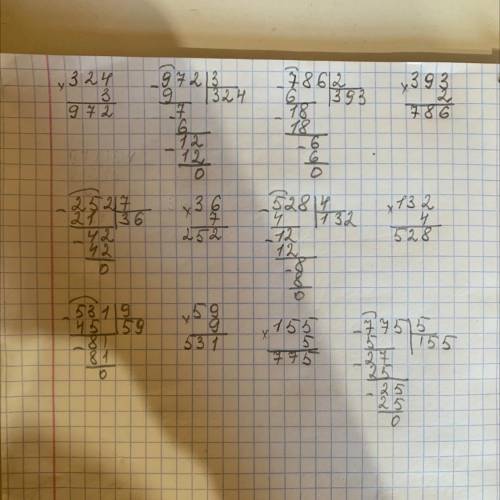 ×324 -972|3 -786|2 ×393
3 9 |324 6 |393 2
972 -7 -18 786
6 18
-12 -6
12 6
0 0
-252|7 ×36 -528|4 ×132
21 |36 7 4 |132 4
-42 252 -12 528
42 12
0 -8
8
0
-531|9 ×59 ×155 -775|5
45 |59 9 5 5 |155
-81 531 775 -27
81 25
0 -25
25
0